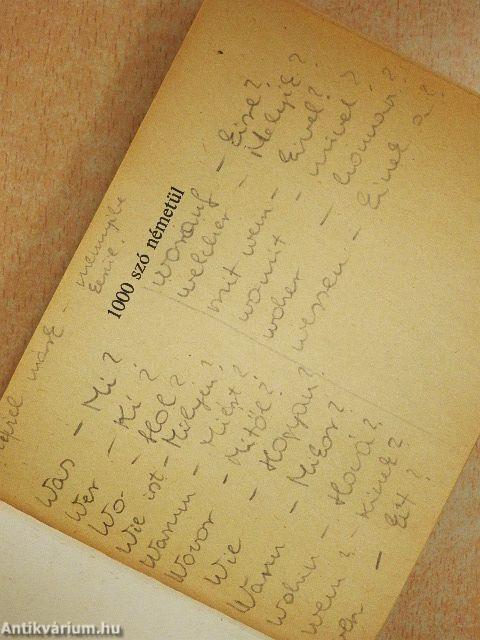 1000 szó németül
mennyibe
Was - Mi?
Wer - Ki?
Wo - Hol?
Wie ist - Milyen?
Warum - Miért?
Wovor - Mitől?
Wie - Hogyan?
Wann - Mikor?
wohin - Hová?
wem? - Kinek?
worauf -
welcher - Melyik?
mit wem - Kivel?
womit - mivel?
woher - honnan?
wessen - Kinek a?
Antikvárium.hu